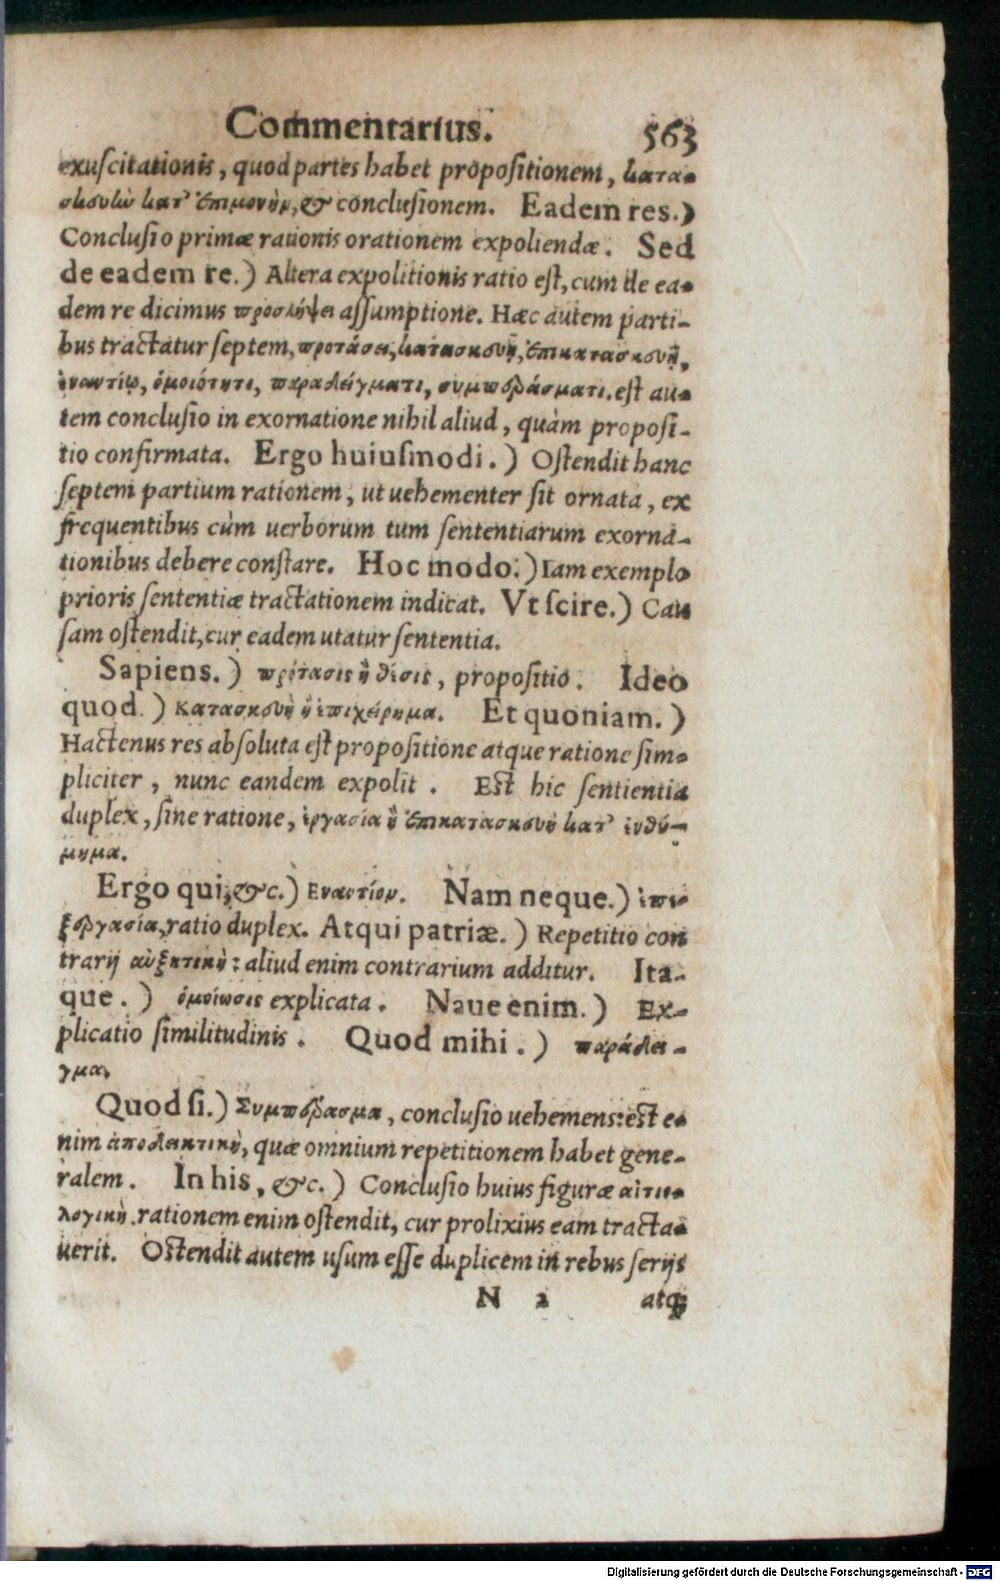 Commentarius. 563
exuscitationis, quod partes habet propositionem, κατα-
σκευὴν κατ' ἐπιμονὴν, & conclusionem. Eadem res.)
Conclusio primæ rationis orationem expoliendæ. Sed
de eadem re.) Altera expolitionis ratio est, cum de ea-
dem re dicimus προσλήψει assumptione. Hæc autem parti-
bus tractatur septem, προτάσει, κατασκευῇ, ἐπικατασκευῇ,
ἐναντίῳ, ὁμοιότητι, παραδείγματι, συμπεράσματι. est au-
tem conclusio in exornatione nihil aliud, quàm proposi-
tio confirmata. Ergo huiusmodi.) Ostendit hanc
septem partium rationem, ut uehementer sit ornata, ex
frequentibus cùm uerborum tum sententiarum exorna-
tionibus debere constare. Hoc modo.) Iam exemplo
prioris sententiæ tractationem indicat. Vt scire.) Cau
sam ostendit, cur eadem utatur sententia.
Sapiens.) πρότασις ἢ θέσις, propositio. Ideo
quod.) Κατασκευὴ ἢ ἐπιχείρημα. Et quoniam.)
Hactenus res absoluta est propositione atque ratione sim-
pliciter, nunc eandem expolit. Est hic sentientia
duplex, sine ratione, ἐργασία ἢ ἐπικατασκευὴ κατ' ἐνθύ-
μημα.
Ergo qui, &c.) Εναντίον. Nam neque.) ἐπε-
ξεργασία, ratio duplex. Atqui patriæ.) Repetitio con
trarij αὐξητικὴ: aliud enim contrarium additur. Ita-
que.) ὁμοίωσις explicata. Naue enim.) Ex-
plicatio similitudinis. Quod mihi.) παράδει-
γμα.
Quod si.) Συμπέρασμα, conclusio uehemens: est e-
nim ἀποδεικτικὴ, quæ omnium repetitionem habet gene-
ralem. In his, &c.) Conclusio huius figuræ αἰτιο-
λογικὴ. rationem enim ostendit, cur prolixius eam tracta-
uerit. Ostendit autem usum esse duplicem in rebus serijs
N 2 atq;
Digitalisierung gefördert durch die Deutsche Forschungsgemeinschaft - DFG